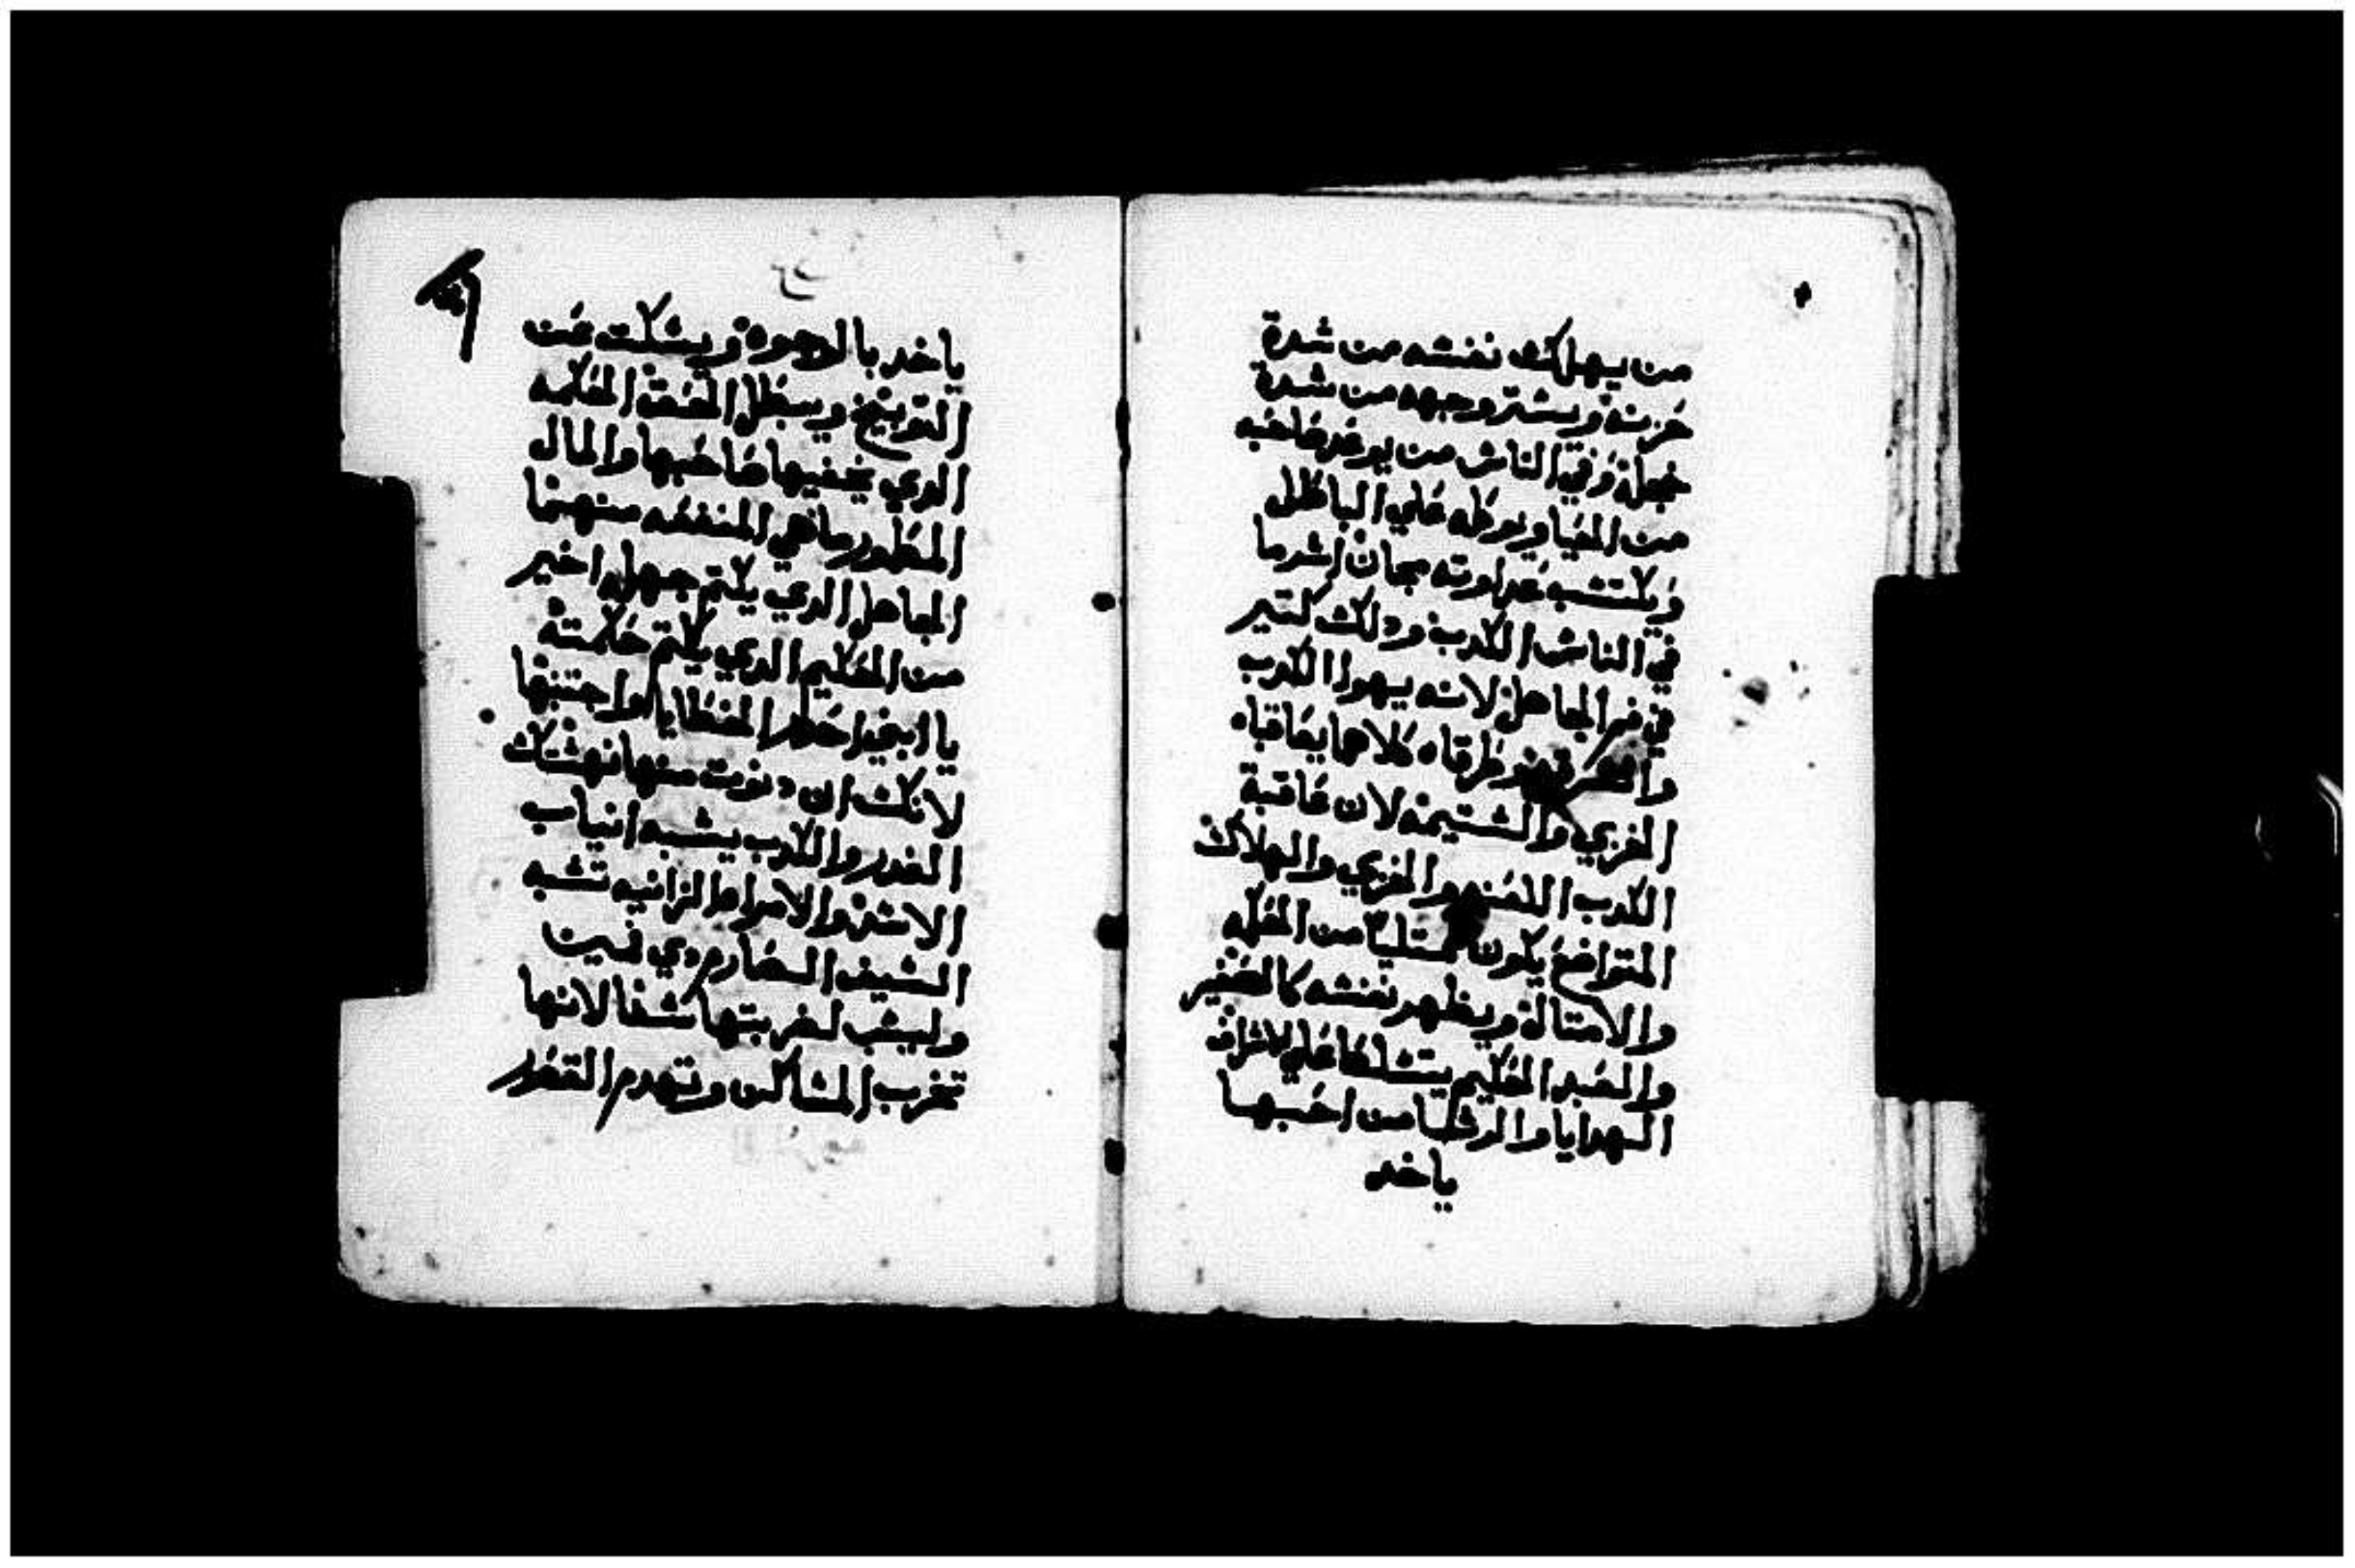 من يهلك نفسه من شدة
حزنه ويستر وجهه من شدة
خجله وفي الناس من يوعد صاحبه
من الحيا ويوعظه علي الباطل
ويكتسب عداوته مجان اشر ما
في الناس الكدب ودلك كتير
في فم الجاهل لانه يهوا الكدب
طرقاه كلاهما يعاقباه
الخزي والشتيمه لان عاقبة
الكدب اللعنه والخزي والهلاك
المتواضع يكون ممتليا من الحكمه
والامتاله ويظهر نفسه كالصغير
والعبد الحكيم يتسلط علي الاشراف
الهدايا والرشا من احبها
ياخد
ياخد بالوجوه ويسكت عن
التوبيخ ويبطل الحق الحكمه
الدي يخفيها صاحبها والمال
المطمور ما هي المنفعه منهما
الجاهل الدي يكتم جهله اخير
من الحكيم الدي يكتم حكمته
يا ابني احدر الخطايا واجتنبها
لانك ان دنوت منها نهشتك
الغدر والكدب يشبه انياب
الاسد والامراه الزانيه تشبه
السيف الصارم دي فمين
وليس لضربتها شفا لانها
تخرب المساكن وتهدم القصور